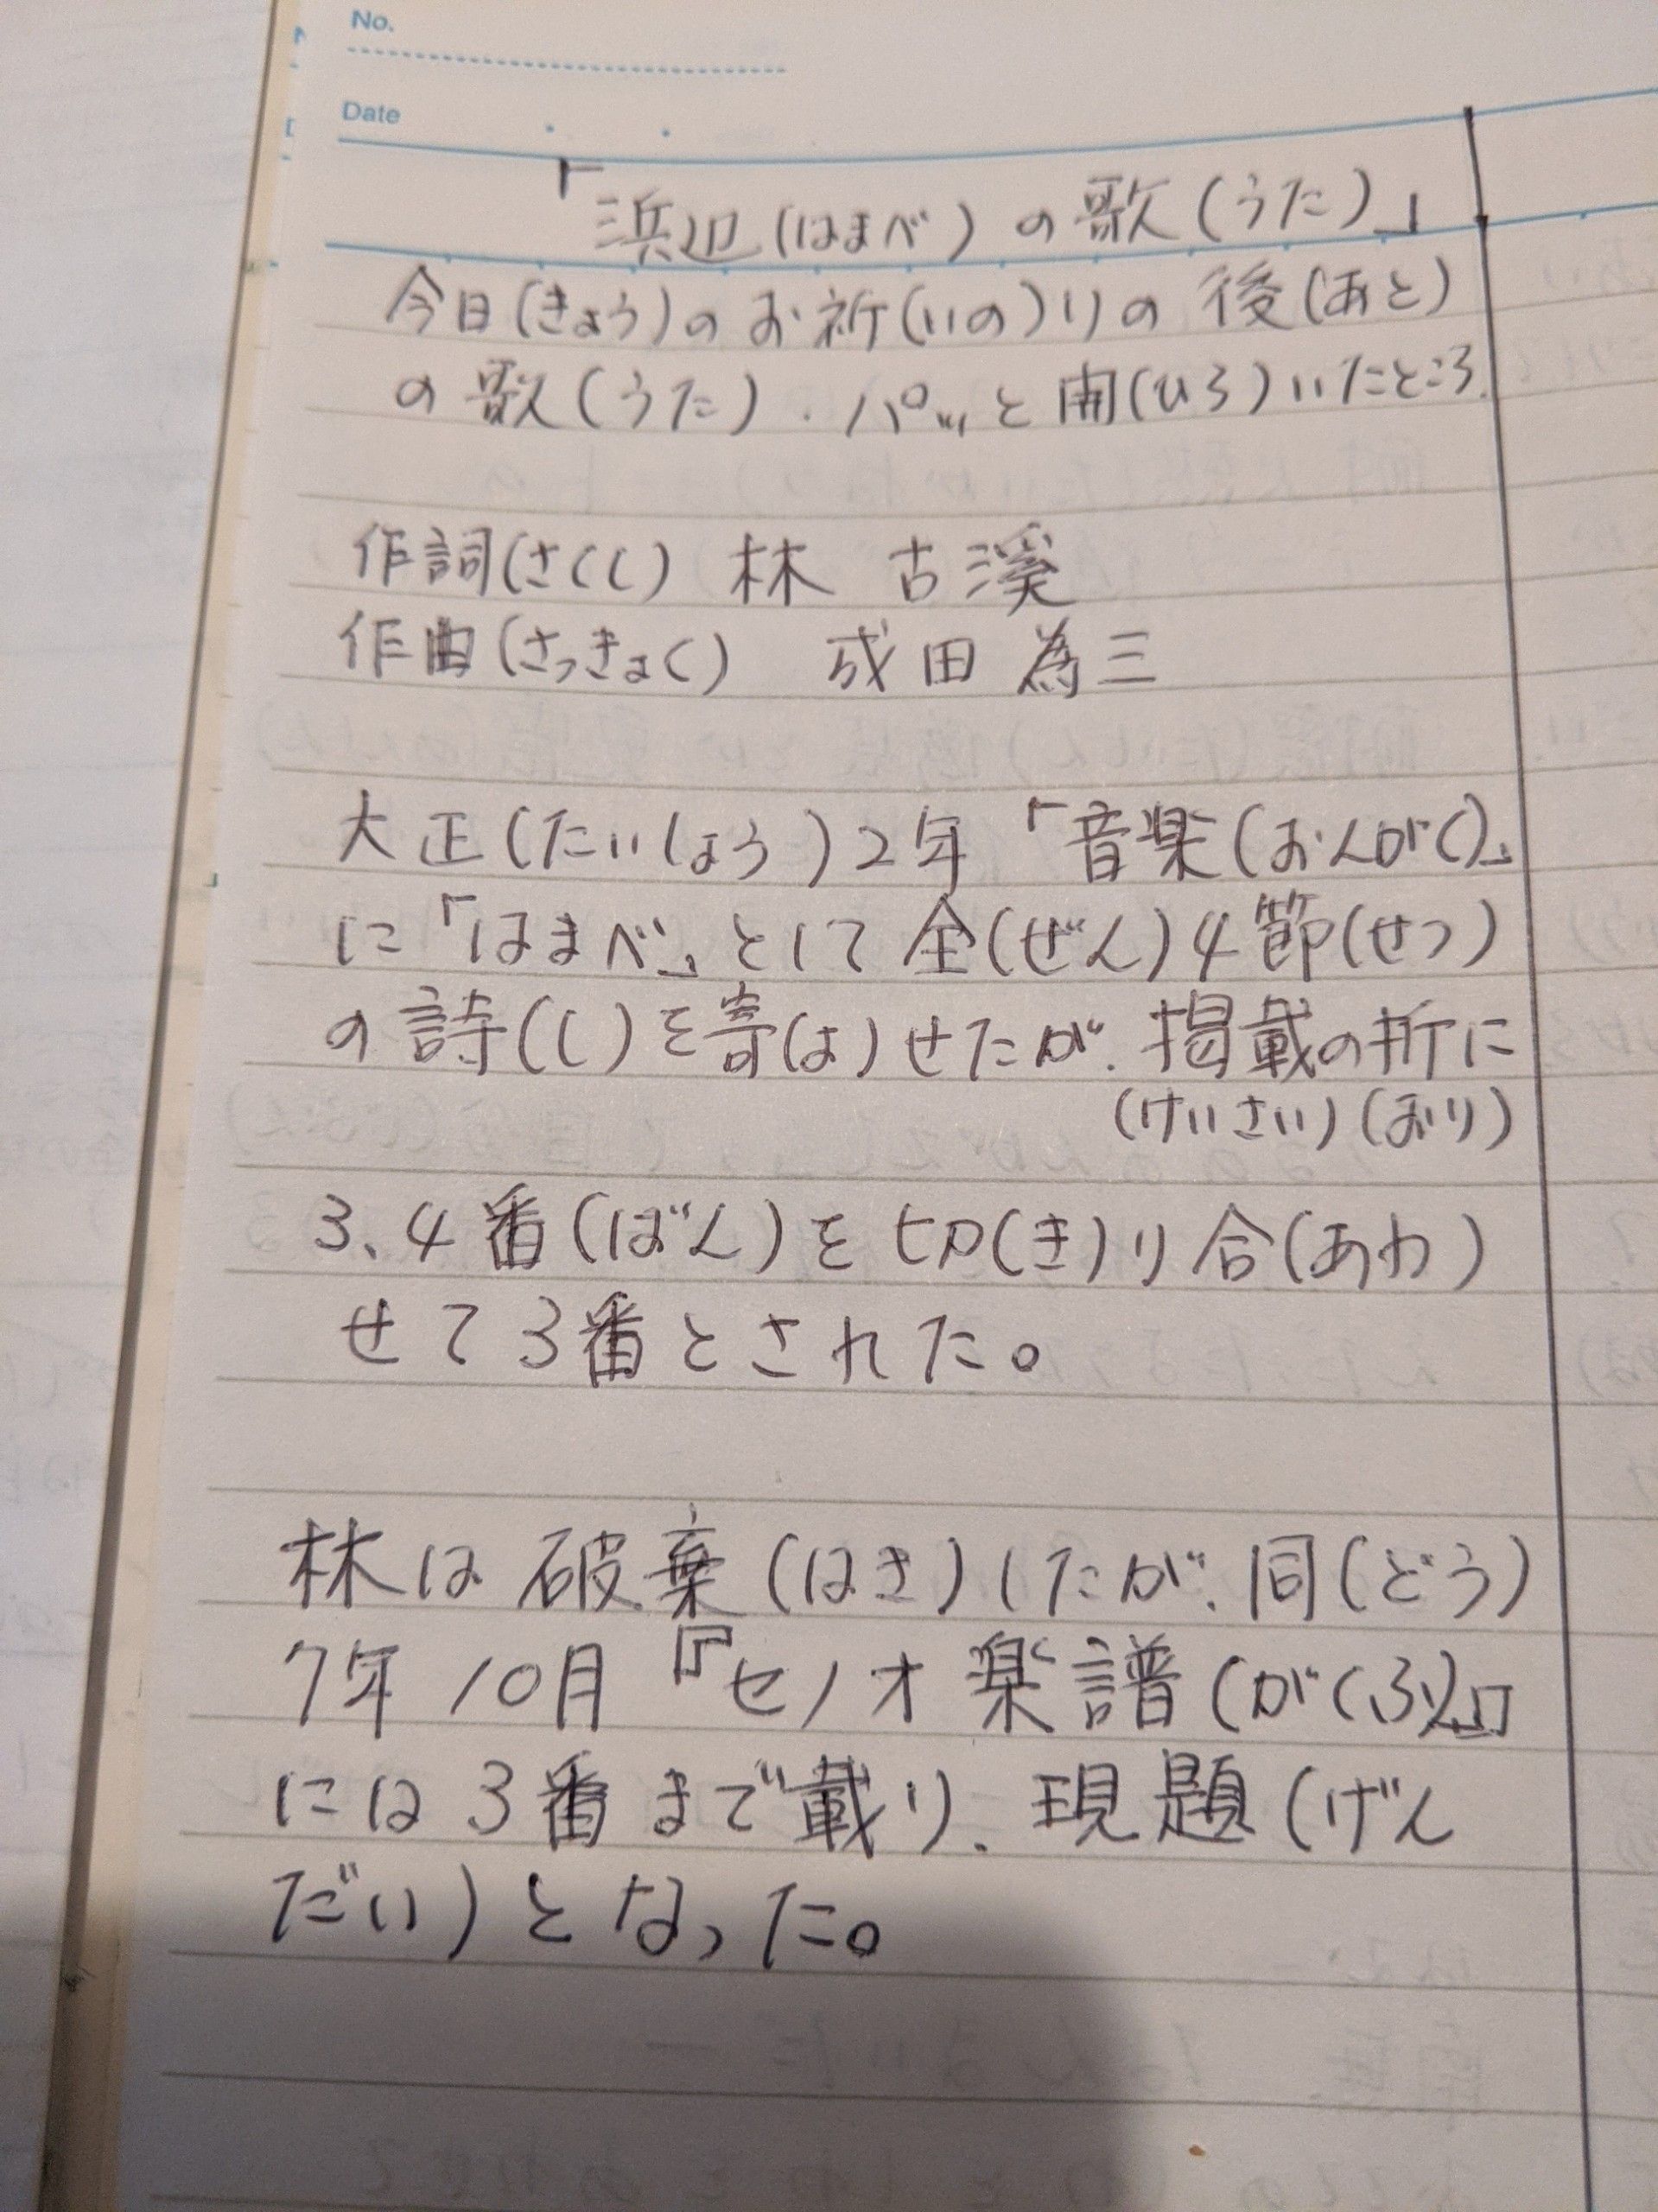 No.
Date
「浜辺(はまべ)の歌(うた)」
今日(きょう)のお祈(いの)りの後(あと)
の歌(うた)、パッと開(ひら)いたところ、
作詞(さくし) 林 古溪
作曲(さっきょく) 成田 為三
大正(たいしょう)2年「音楽(おんがく)」
に「はまべ」として全(ぜん)4節(せつ)
の詩(し)を寄(よ)せたが、掲載の折に
(けいさい)(おり)
3、4番(ばん)を切(き)り合(あわ)
せて3番とされた。
林は破棄(はき)したが、同(どう)
7年10月『セノオ楽譜(がくふ)』
には3番まで載り、現題(げん
だい)となった。